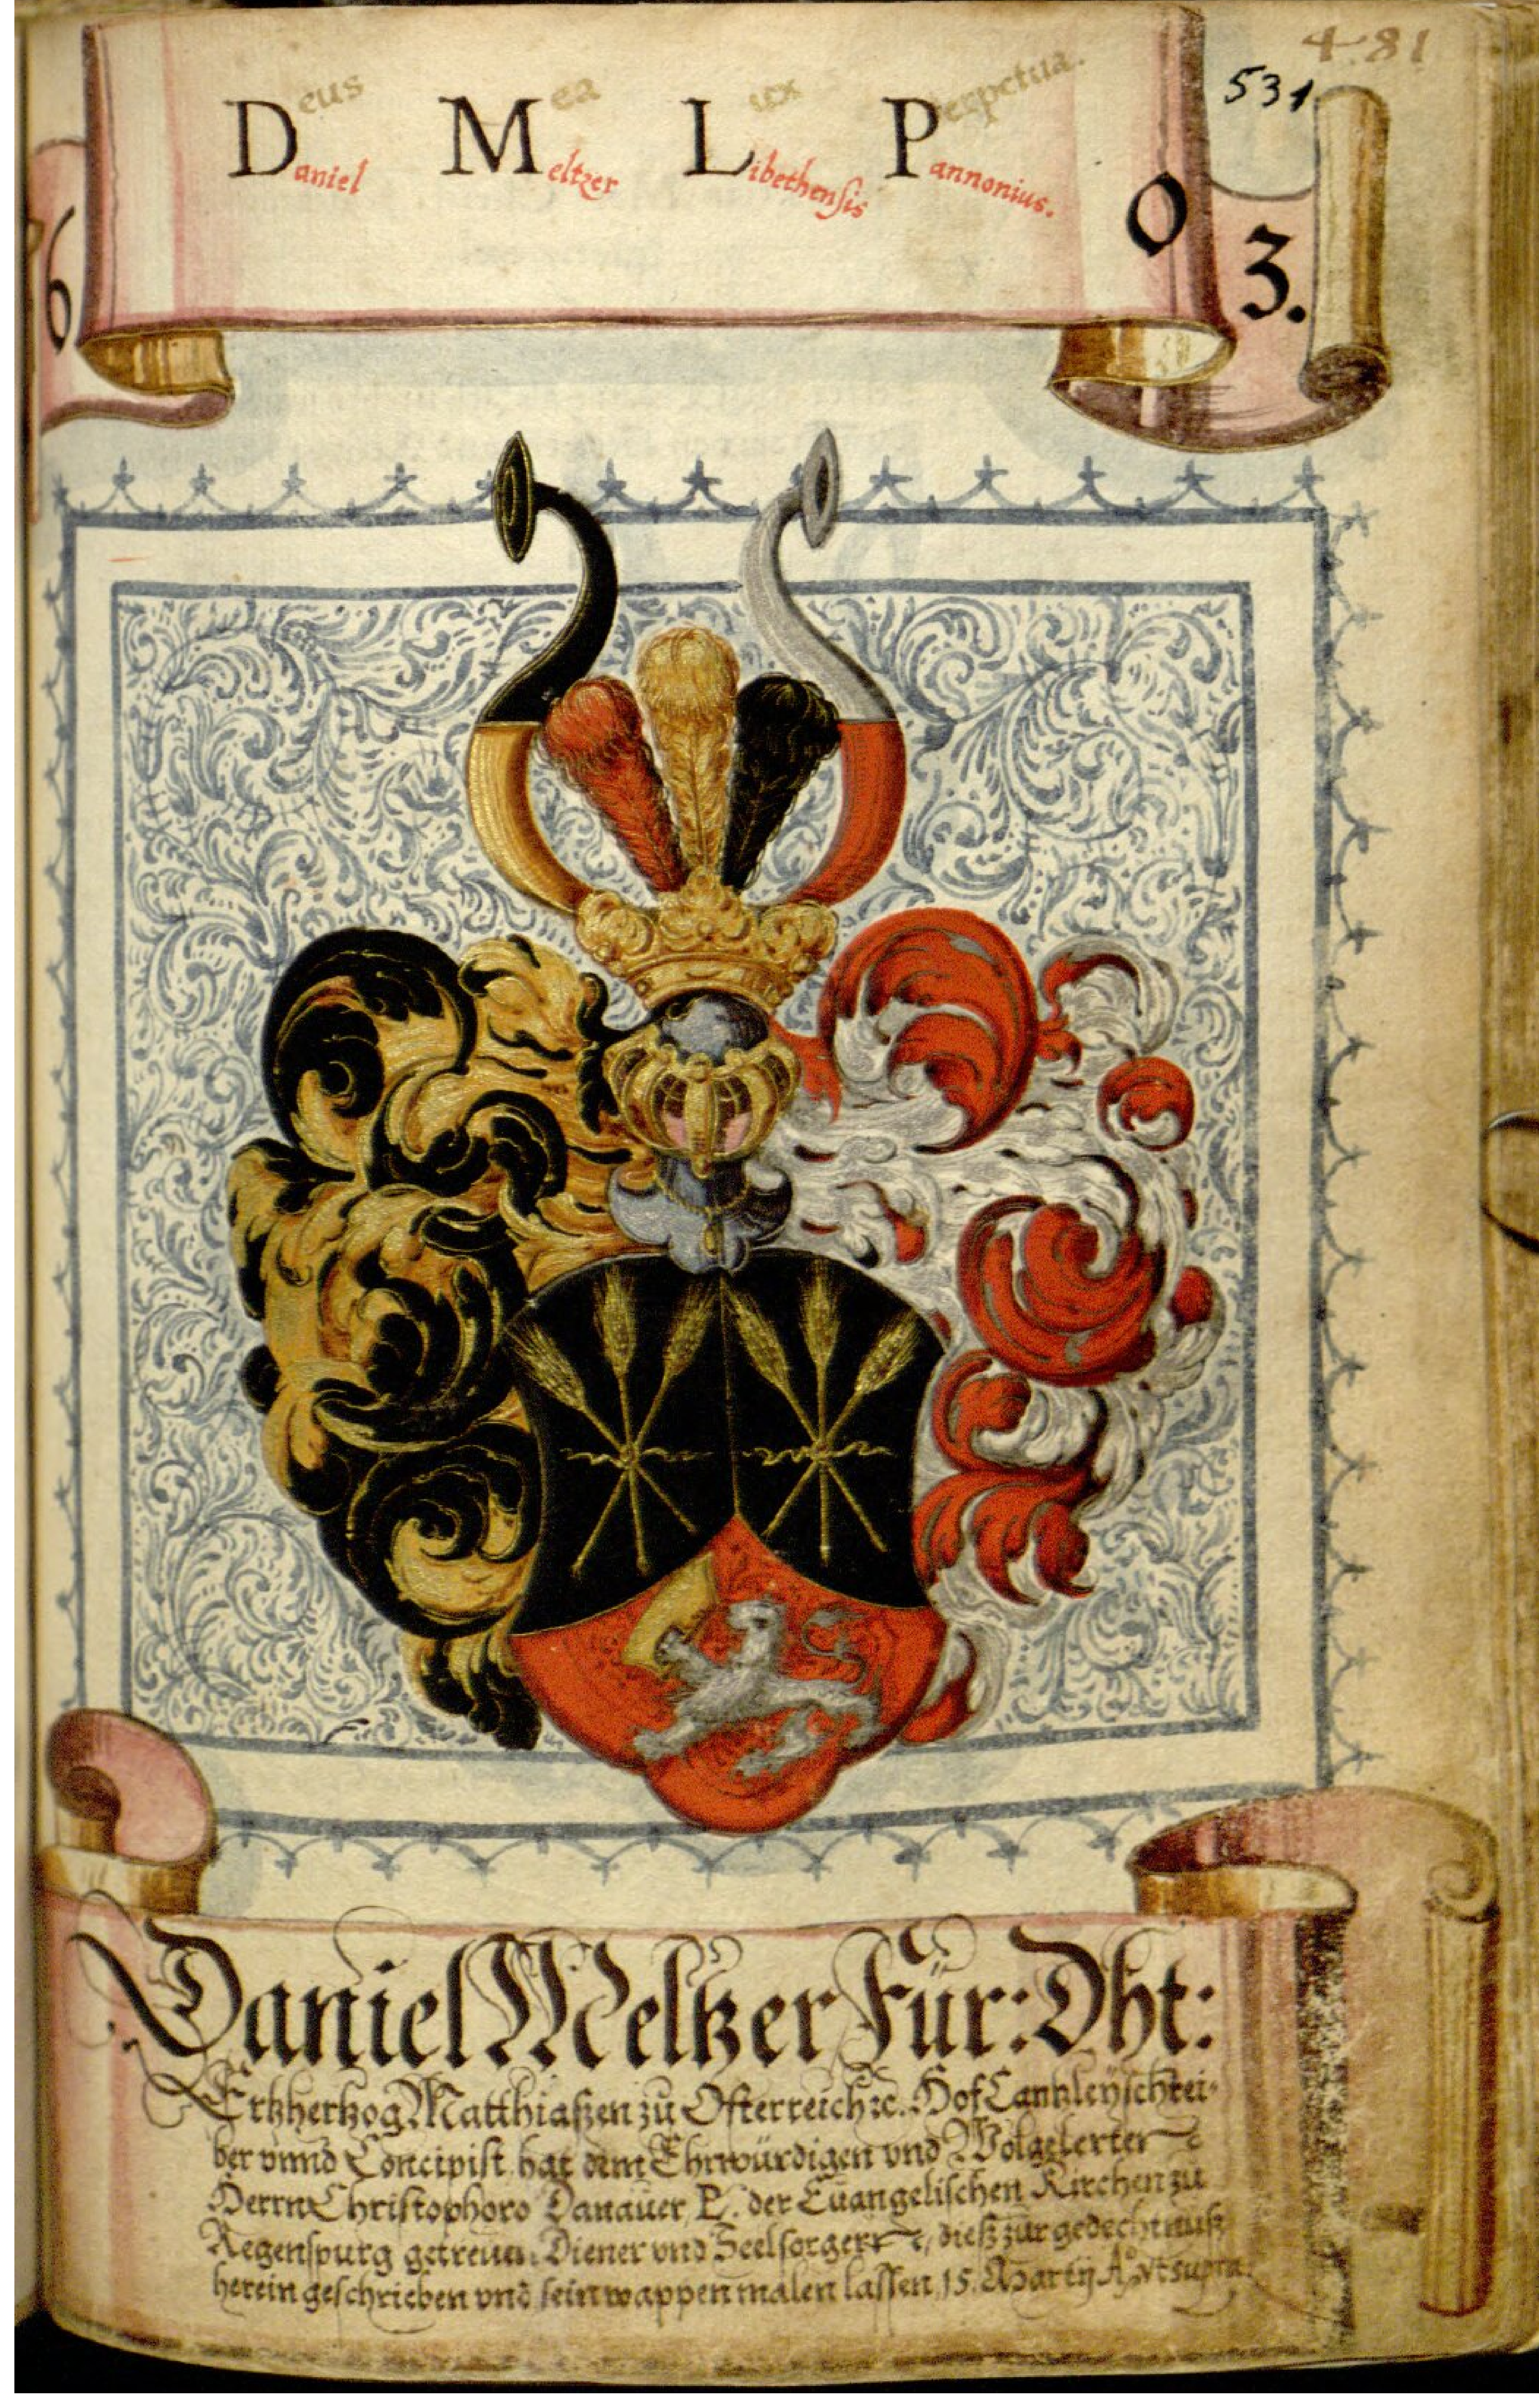 4.81
531
Deus Mea Lux Perpetua.
Daniel Meltzer Libethensis Pannonius.
6 0 3.
Daniel Meltzer Für: Dht:
Ertzhertzog Matthiaßen zu Osterreich ꝛc. Hof Cantzleÿschrei-
ber vnnd Concipist hat dem Ehrwürdigen vnd Wolgelerten
Herrn Christophoro Danauer P. der Euangelischen Kirchen zu
Regenspurg getreuen Diener vnd Seelsorgern ꝛc, dieß zur gedechtnuß
herein geschrieben vnd sein wappen malen lassen 15. Martij Aº vt supra.